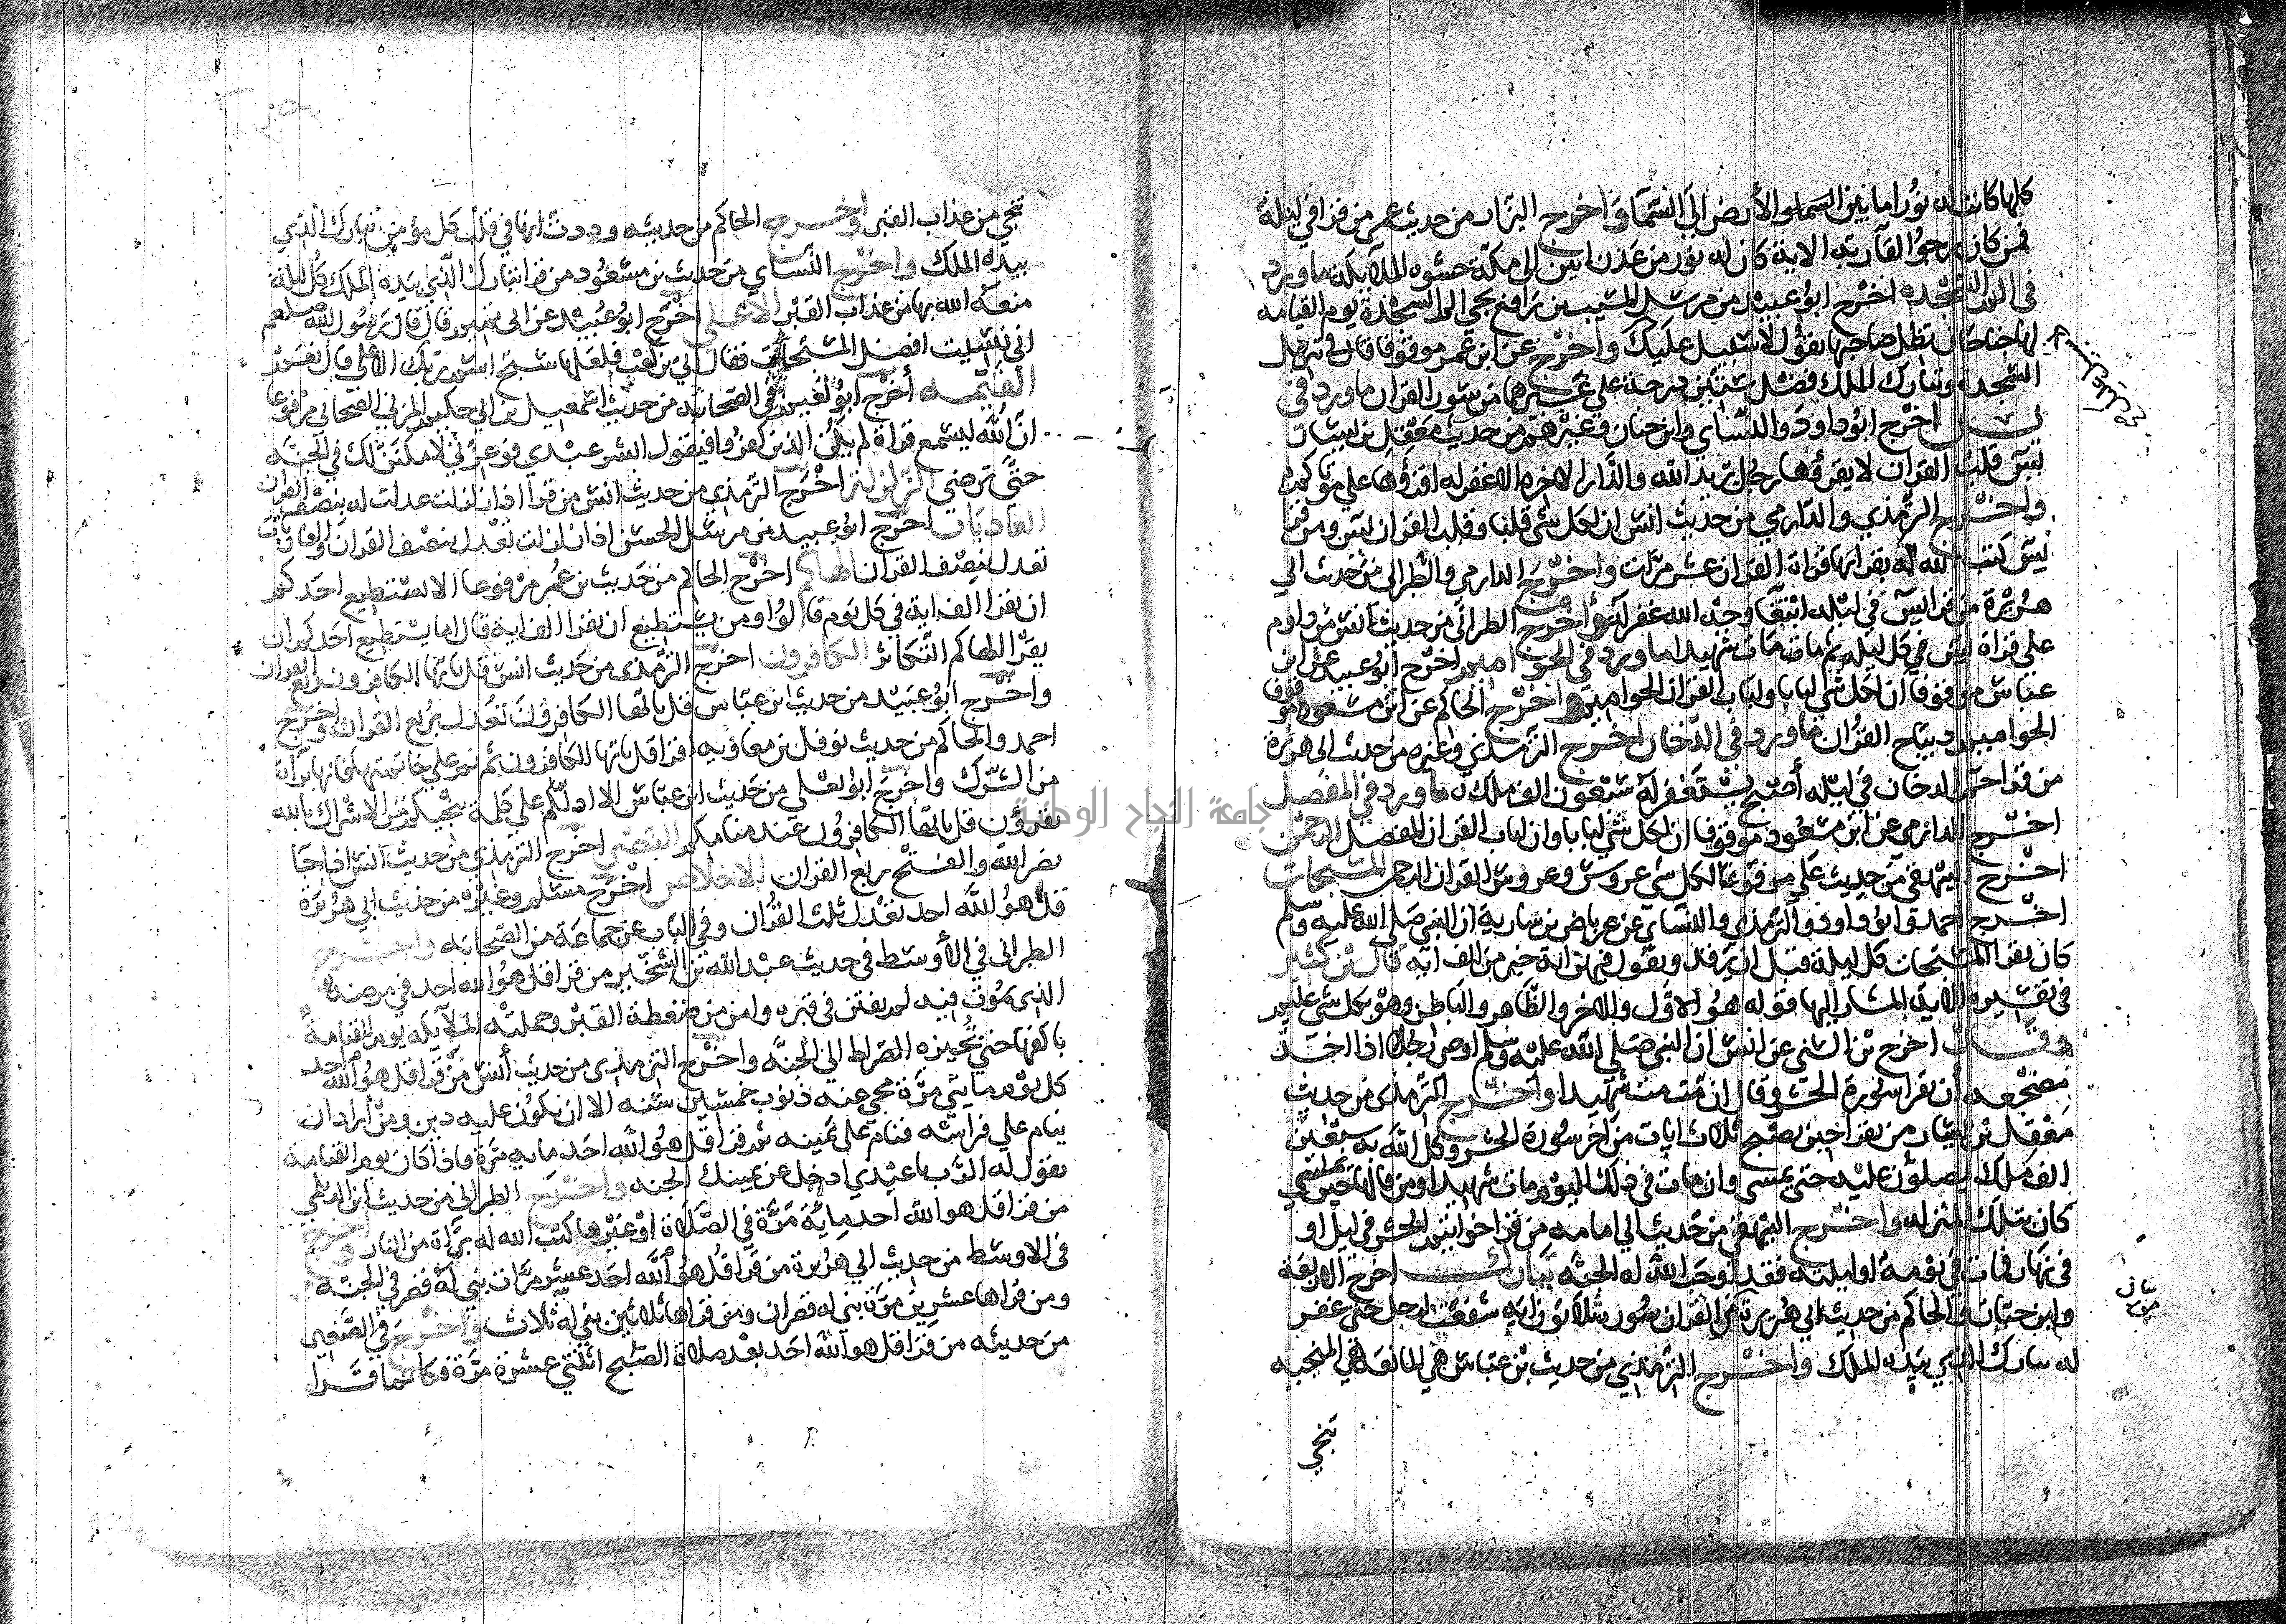 كلها كانت له نورا ما بين السماء والأرض الى السما واخرج البزار من حديث عمر من قرا في ليلة
فمن كان يرجوا لقآ ربه الاية كان له نور من عدن ابين الى مكة حشوه الملآيكة ما ورد
في الم السجدة اخرج ابو عبيد من مرسل المسيب بن رافع تجي الم السجدة يوم القيامه
لها جناحان تظل صاحبها تقول لا سبيل عليك واخرج عن ابن عمر موقوفا قال في تنزيل
السجدة وتبارك الملك فضل ستين درجة على غيرهما من سور القران ما ورد في
يس اخرج ابو داود والنساي وابن حبان وغيرهم من حديث معقل بن يسار
يس قلب القران لا يقرؤها رجل يريد الله والدار الاخره الا غفر له اقرؤها على موتاكم
واخرج الترمذي والدارمي من حديث انس ان لكل شي قلبا وقلب القران يس ومن قرا
يس كتب الله له بقراتها قراة القران عشر مرات واخرج الدارمي والطبراني من حديث ابي
هريرة من قرا يس في ليله ابتغآ وجه الله غفر له واخرج الطبراني من حديث انس من داوم
على قراة يس في كل ليله ثم مات مات شهيدا ما ورد في الحواميم اخرج ابو عبيد عن ابن
عباس موقوفا ان لكل شي لبابا ولباب القران الحواميم واخرج الحاكم عن ابن مسعود موقوفا
الحواميم ديباج القران ما ورد في الدخان اخرج الترمذي وغيره من حديث ابي هريرة
من قرا حم الدخان في ليله أصبح يستغفر له سبعون الف ملك ما ورد في المفصل
اخرج الدارمي عن ابن مسعود موقوفا ان لكل شي لبابا وان لباب القران المفصل الرحمن
اخرج البيهقي من حديث علي مرفوعا لكل شي عروس وعروس القران الرحمن المسبحات
اخرج احمد وابو داود والترمذي والنساي عن عرباض بن سارية ان النبي صلى الله عليه وسلم
كان يقرا المسبحات كل ليلة قبل ان يرقد ويقول فيهن اية خير من الف اية قال بن كثير
في تفسيره الاية المشار اليها قوله هو الاول والاخر والظاهر والباطن وهو بكل شي عليم
وقال اخرج بن السني عن انس ان النبي صلى الله عليه وسلم اوصى رجلا اذا اخذ
مضجعه أن يقرا سورة الحشر وقال ان مت مت شهيدا واخرج الترمذي من حديث
معقل بن يسار من قرا حين يصبح ثلاث ايات من اخر سورة الحشر وكل الله به سبعين
الف ملك يصلون عليه حتى يمسي وان مات في ذلك اليوم مات شهيدا ومن قالها حين يمسي
كان بتلك المنزله واخرج البيهقي من حديث ابي امامه من قرا خواتيم الحشر في ليل او
في نهار فمات في يومه او ليلته فقد اوجب الله له الجنه تبارك اخرج الاربعة
وابن حبان والحاكم من حديث ابي هريرة من القران سورة ثلاثون اية شفعت لرجل حتى غفر
له تبارك الذي بيده الملك واخرج الترمذي من حديث بن عباس هي المانعة هي المنجيه
تنجي
تنجي من عذاب القبر واخرج الحاكم من حديثه وددت انها في قلب كل مؤمن تبارك الذي
بيده الملك واخرج النساي من حديث بن مسعود من قرا تبارك الذي بيده الملك كل ليلة
منعه الله بها من عذاب القبر الاعلى اخرج ابو عبيد عن ابي تميم قال قال رسول الله صلعم
اني نسيت افضل المسبحات فقال ابي بن كعب فلعلها سبح اسم ربك الاعلى قال نعم
القيمه أخرج ابو نعيم في الصحابه من حديث اسمعيل بن ابي حكيم المزني الصحابي مرفوعا
ان الله ليسمع قراة لم يكن الذين كفروا فيقول ابشر عبدي فوعزتي لامكنن لك في الجنه
حتى ترضى الزلزلة اخرج الترمذي من حديث انس من قرا اذا زلزلت عدلت له بنصف القران
العاديات اخرج ابو عبيد من مرسل الحسن اذا زلزلت تعدل بنصف القران والعاديات
تعدل بنصف القران الهاكم اخرج الحاكم من حديث بن عمر مرفوعا الا يستطيع احدكم
ان يقرا الف اية في كل يوم قالوا ومن يستطيع ان يقرا الف اية قال اما يستطيع احدكم ان
يقرا الهاكم التكاثر الكافرون اخرج الترمذي من حديث انس قل يايها الكافرون ربع القران
واخرج ابو عبيد من حديث ابن عباس قل يايها الكافرون تعدل بربع القران واخرج
احمد والحاكم من حديث نوفل بن معاويه اقرا قل يايها الكافرون ثم نم على خاتمتها فانها براة
من الشرك واخرج ابو يعلى من حديث ابن عباس الا ادلكم على كلمة تنجيكم من الاشراك بالله
تقرؤن قل يايها الكافرون عند منامكم النصر اخرج الترمذي من حديث انس اذا جا
نصر الله والفتح ربع القران الاخلاص اخرج مسلم وغيره من حديث ابي هريرة
قل هو الله احد تعدل ثلث القران وفي الباب عن جماعة من الصحابه واخرج
الطبراني في الأوسط في حديث عبد الله بن الشخير من قرا قل هو الله احد في مرضه
الذي يموت فيه لم يفتن في قبره وامن من ضغطة القبر وحملته الملآيكه يوم القيامة
باكفها حتى تجيزه الصراط الي الجنه واخرج الترمذي من حديث أنس من قرا قل هو الله احد
كل يوم مايتي مرة محي عنه ذنوب خمسين سنه الا ان يكون عليه دين ومن اراد ان
ينام على فراشه فنام على يمينه ثم قرا قل هو الله احد مايه مرة فاذا كان يوم القيامة
يقول له الرب يا عبدي ادخل عن يمينك الجنه واخرج الطبراني من حديث ابن الديلمي
من قرا قل هو الله احد مائة مرة في الصلاة او غيرها كتب الله له براة من النار واخرج
في الاوسط من حديث ابي هريرة من قرا قل هو الله احد عشر مرات بني له قصر في الجنه
ومن قراها عشرين مرة بني له قصران ومن قراها ثلاثين بني له ثلاث واخرج في الصغير
من حديثه من قرا قل هو الله احد بعد صلاة الصبح اثنتي عشرة مرة فكانما قرا
جامعة النجاح الوطنية